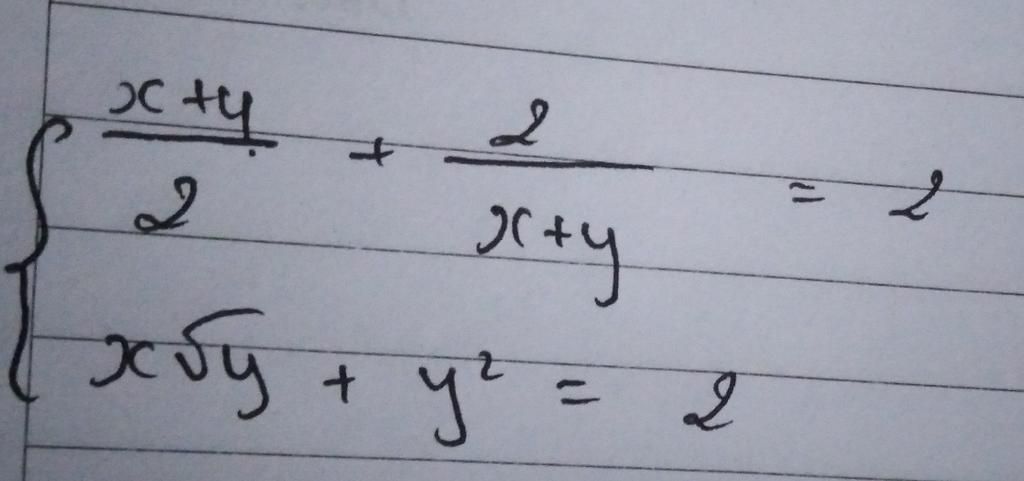 { (x+y)/2 + 2/(x+y) = 2
x√y + y² = 2